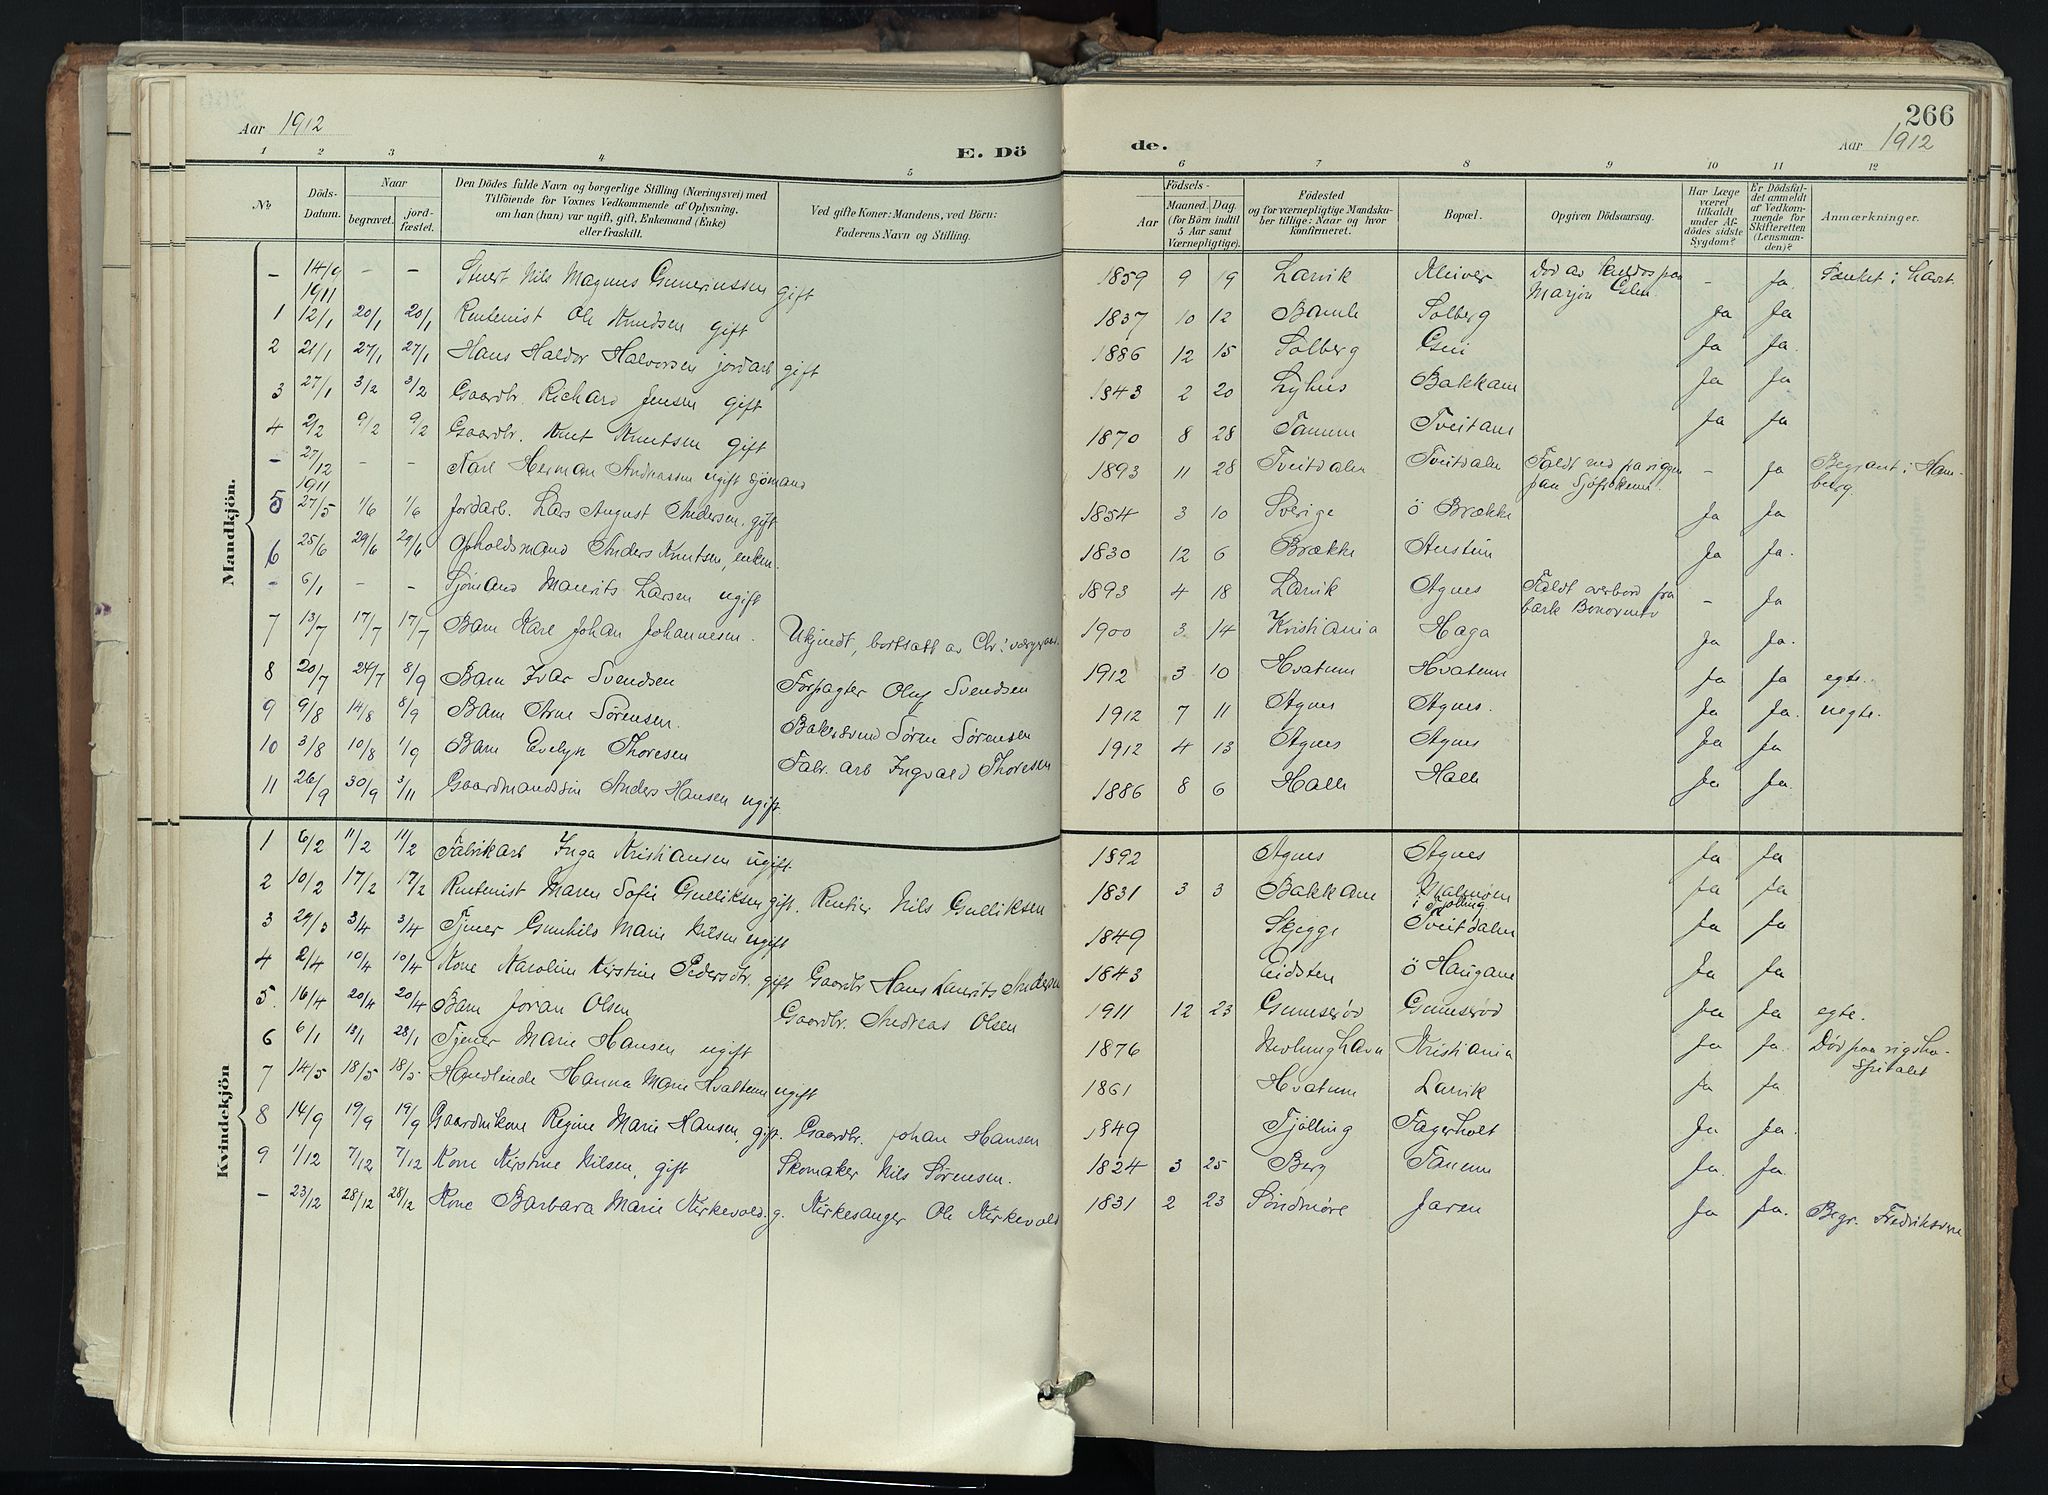 Aar 1912
E. Dö
de.
266
Aar 1912
1 2 3 4 5 6 7 8 9 10 11 12
№
Döds-Datum.
Naar
begravet.
jord-fæstet.
Den Dödes fulde Navn og borgerlige Stilling (Næringsvei) med
Tilföiende for Voxnes Vedkommende af Oplysning,
om han (hun) var ugift, gift, Enkemand (Enke)
eller fraskilt.
Ved gifte Koner: Mandens, ved Börn:
Faderens Navn og Stilling.
Födsels-
Aar
Maaned. Dag.
(for Börn indtil
5 Aar samt
Værnepligtige).
Födested
og for værnepligtige Mandska-
ber tillige: Naar og hvor
konfirmeret.
Bopæl.
Opgiven Dödsaarsag.
Har Læge
været
tilkaldt
under Af-
dödes sidste
Sygdom?
Er Dödsfal-
det anmeldt
af Vedkom-
mende for
Skifteretten
(Lensman-
den)?
Anmærkninger.
Mandkjön.
- 14/9 1911 - - Stuert Nils Magnus Gunerinssen gift 1859 9 19 Larvik Kleiver - Ja.
1 12/1 20/1 20/1 Rentenist Ole Knudsen gift 1837 10 12 Bamle Solberg Ja Ja
2 21/1 27/1 27/1 Hans Haldor Halvorsen jordarb gift 1886 12 15 Solberg Ja Ja.
3 27/1 3/2 3/2 Gaardbr. Richard Jensen gift 1843 2 20 Lyhus Bakkane Ja Ja
4 2/2 9/2 9/2 Gaardbr. Knut Knutsen gift 1870 8 28 Tanum Tveitane Ja Ja
- 27/12 1911 - - Karl Herman Andreassen ugift sjömand 1893 11 28 Tveitdalen Tveitdalen Faldt ned fra riggen paa Sjöfrøkenen. - Ja Begravet i Hamburg.
5 27/5 1/6 1/6 Jordarb. Lars August Andersen. gift 1854 3 10 Sverige ö Brække Ja Ja
6 25/6 29/6 29/6 Opholdsmand Anders Knutsen, enkm. 1830 12 6 Brække Austein Ja Ja.
- 6/1 - - Sjömand Maurits Larsen ugift 1893 4 18 Larvik Agnes Faldt overbord fra bark - Ja
7 13/7 17/7 17/7 Barn Karl Johan Johannesen. Ukjendt, bortsatt av Chr: 1900 3 14 Kristiania Haga Ja Ja.
8 20/7 24/7 8/9 Barn Ivar Svendsen Forpagter Oluf Svendsen 1912 3 10 Hvatum Hvatum Ja Ja egte.
9 9/8 14/8 8/9 Barn Arne Sörensen. Bakersvend Sören Sörensen 1912 7 11 Agnes Agnes. Ja Ja. uegte.
10 3/8 10/8 1/9 Barn Evelyn Thoresen Fabr. arb Ingvald Thoresen 1912 4 13 Agnes Agnes Ja Ja
11 26/9 30/9 3/11 Gaardmandssön Anders Hansen ugift. 1886 8 6 Halle Halle Ja Ja.
Kvindekjön
1 6/2 11/2 11/2 Fabrikarb Inga Kristiansen ugift. 1892 Agnes Agnes Ja Ja
2 10/2 17/2 17/2 Rentenist Maren Sofie Gulliksen gift. Rentier Nils Gulliksen 1831 3 3 Bakkane Malmøen i Tjölling Ja Ja
3 29/3 3/4 3/4 Tjener Gunhild Marie Nilsen ugift 1849 Skjegge Tveitdalen Ja Ja
4 2/4 10/4 10/4 Kone Karoline Kirstine Pedersdtr. gift Gaardbr Hans Laurits Andersen 1843 Eidsten ö Haugane Ja Ja.
5. 16/4 20/4 20/4 Barn Joran Olsen Gaardbr. Andreas Olsen 1911 12 23 Gunneröd Gunneröd Ja Ja egte.
6 6/1 13/1 28/1 Tjener Marie Hansen ugift 1876 Nevlunghavn Kristiania Ja Ja. Död paa rigsho-spitalet
7 14/5 18/5 18/5 Handlende Hanna Marie Hvattum ugift 1861 Hvatum Larvik Ja Ja.
8 14/9 19/9 19/9 Gaardmkone Regine Marie Hansen, gift. Gaardbr. Johan Hansen 1849 Tjölling Fagerholt Ja Ja.
9 1/12 7/12 7/12 Kone Kirstine Nilsen, gift Skomaker Nils Sörensen. 1824 3 25 Berg Tanum Ja. Ja.
- 23/12 28/12 28/12 Kone Barbara Marie Kirkevold. g. Kirkesanger Ole Kirkevold 1831 2 23 Söndmöre Jaren Ja Ja. Begr. Fredriksværn